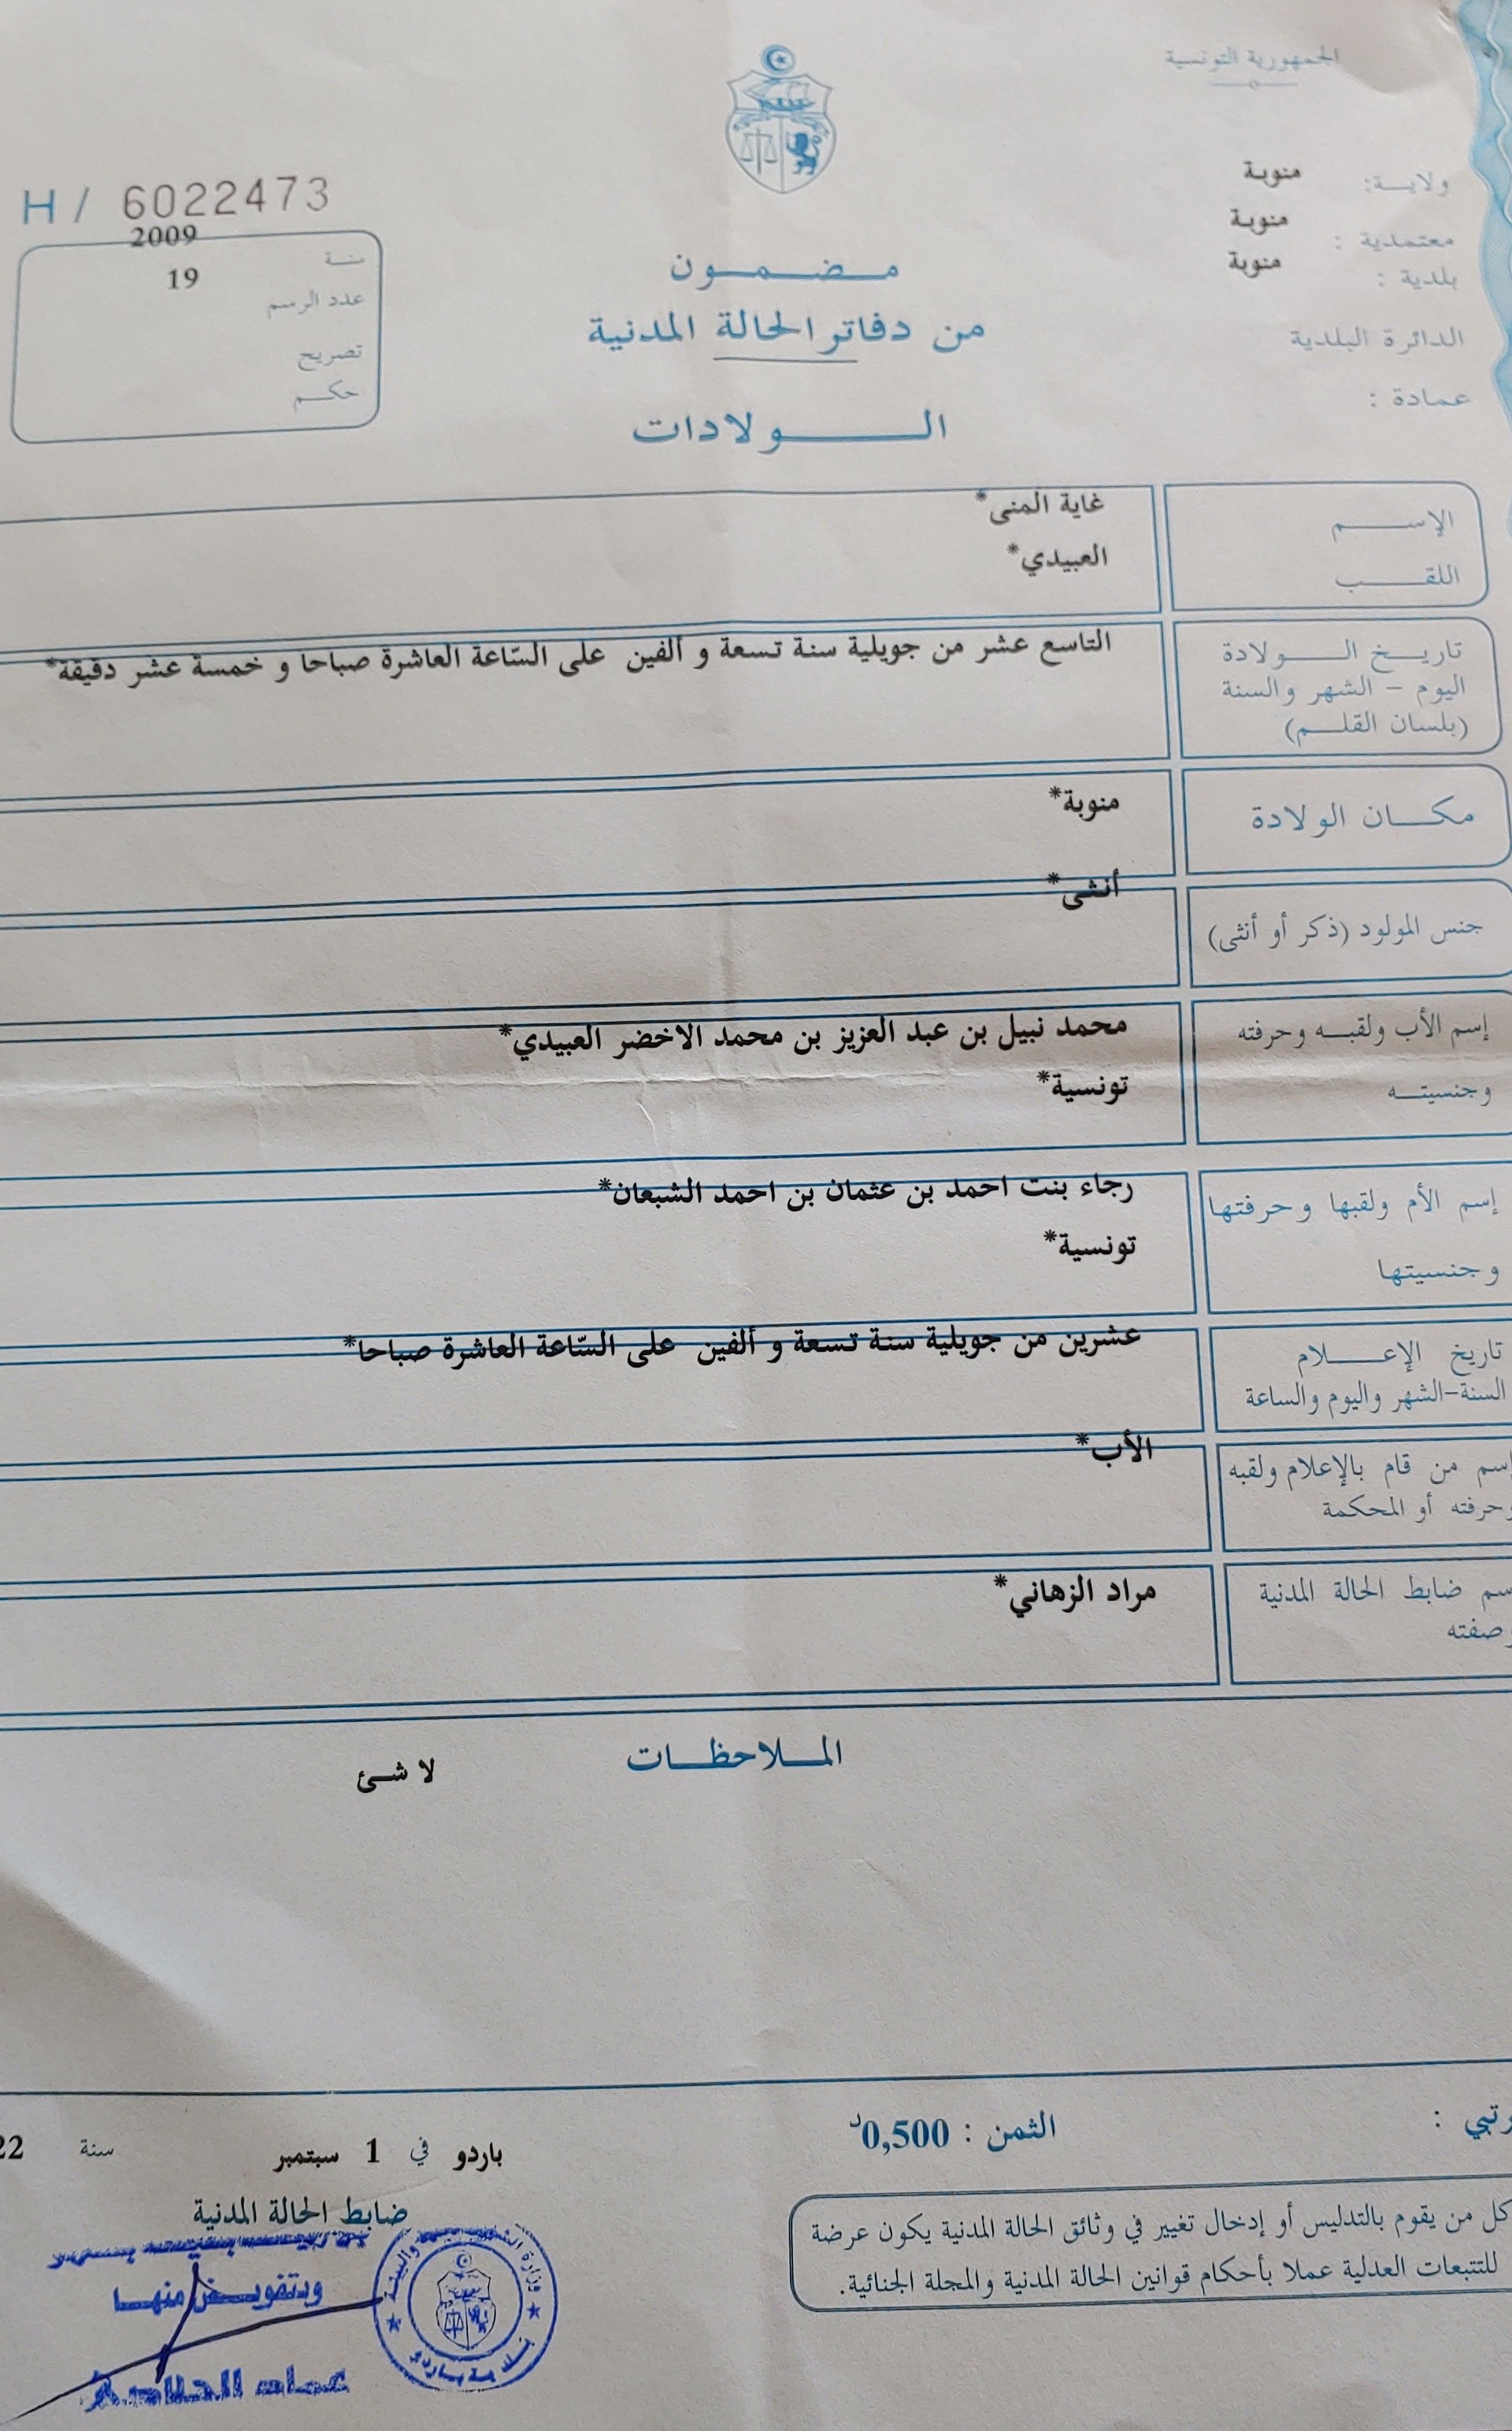 الجمهورية التونسية
ولايـــة: منوبة
معتمدية : منوبة
بلدية : منوبة
الدائرة البلدية
عمادة :
H / 6022473
سنــة 2009
عدد الرسم 19
تصريح
حكــم
مـضـمـون
من دفاتر الحالة المدنية
الـولادات
الإســـم غاية المنى*
اللقـــب العبيدي*
تاريــخ الــولادة التاسع عشر من جويلية سنة تسعة و ألفين على السّاعة العاشرة صباحا و خمسة عشر دقيقة*
اليوم – الشهر والسنة
(بلسان القلــم)
مكــان الولادة منوبة*
جنس المولود (ذكر أو أنثى) أنثى*
إسم الأب ولقبــه وحرفته محمد نبيل بن عبد العزيز بن محمد الاخضر العبيدي*
وجنسيتــه تونسية*
إسم الأم ولقبها وحرفتها رجاء بنت احمد بن عثمان بن احمد الشبعان*
وجنسيتها تونسية*
تاريخ الإعـــلام عشرين من جويلية سنة تسعة و ألفين على السّاعة العاشرة صباحا*
السنة-الشهر واليوم والساعة
إسم من قام بالإعلام ولقبه الأب*
وحرفته أو المحكمة
سم ضابط الحالة المدنية مراد الزهاني*
صفته
المــلاحظــات
لا شئ
رتبي :
الثمن : 0,500د
باردو في 1 سبتمبر سنة 22
ضابط الحالة المدنية
وبتفويـض منهـا
بلدية باردو
كل من يقوم بالتدليس أو إدخال تغيير في وثائق الحالة المدنية يكون عرضة
للتتبعات العدلية عملا بأحكام قوانين الحالة المدنية والمجلة الجنائية.